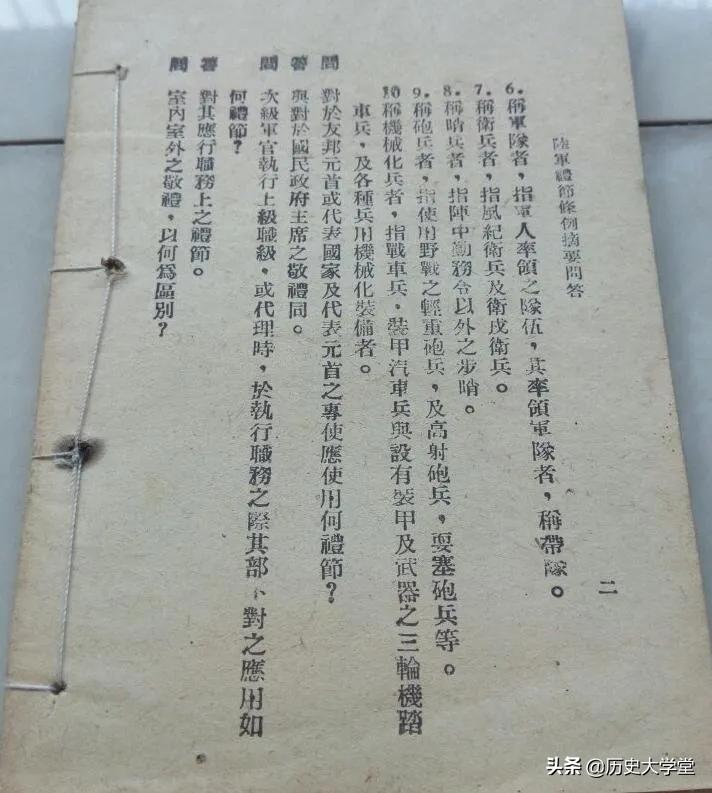 陸軍禮節條例摘要問答
二
6.稱軍隊者，指軍人率領之隊伍，其率領軍隊者，稱帶隊。
7.稱衛兵者，指風紀衛兵及衛戍衛兵。
8.稱哨兵者，指陣中勤務令以外之步哨。
9.稱砲兵者，指使用野戰之輕重砲兵，及高射砲兵，要塞砲兵等。
10稱機械化兵者，指戰車兵，裝甲汽車兵與設有裝甲及武器之三輪機踏
車兵，及各種兵用機械化裝備者。
問 對於友邦元首或代表國家及代表元首之專使應使用何禮節？
答 與對於國民政府主席之敬禮同。
問 次級軍官執行上級職級，或代理時，於執行職務之際其部下對之應用如
何禮節？
答 對其應行職務上之禮節。
問 室內室外之敬禮，以何為區別？
头条 @历史大学堂